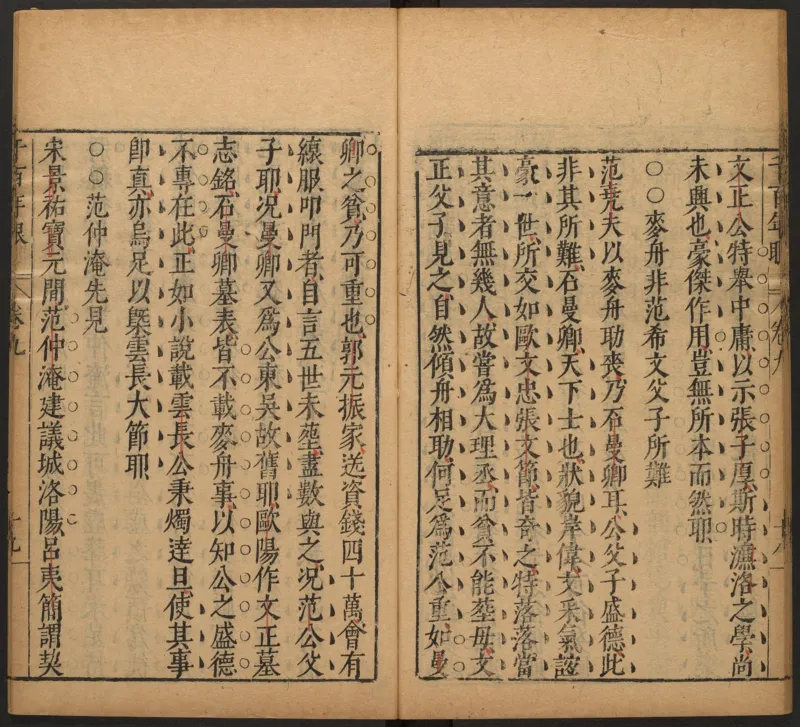 文正公特舉中庸以示張子厚斯時濂洛之學尚
未興也豪傑作用豈無所本而然耶
○○麥舟非范希文父子所難
范堯夫以麥舟助喪乃石曼卿耳公父子盛德此
非其所難石曼卿天下士也狀貌岸偉文釆氣誼
豪一世所交如歐文忠張文節皆奇之特落落當
其意者無幾人故嘗爲大理丞而貧不能塟母文
正父子見之自然傾舟相助何足爲范公重如曼
卿之貧乃可重也郭元振家送資錢四十萬會有
縗服叩門者自言五世未塟盡數與之况范公父
子耶况曼卿又爲公東吳故舊耶歐陽作文正墓
志銘石曼卿墓表皆不載麥舟事以知公之盛德
不專在此正如小說載雲長公秉燭達旦使其事
卽真亦烏足以槩雲長大節耶
○○范仲淹先見
宋景祐寶元間范仲淹建議城洛陽呂夷簡謂契
千百年眼 卷九 十九